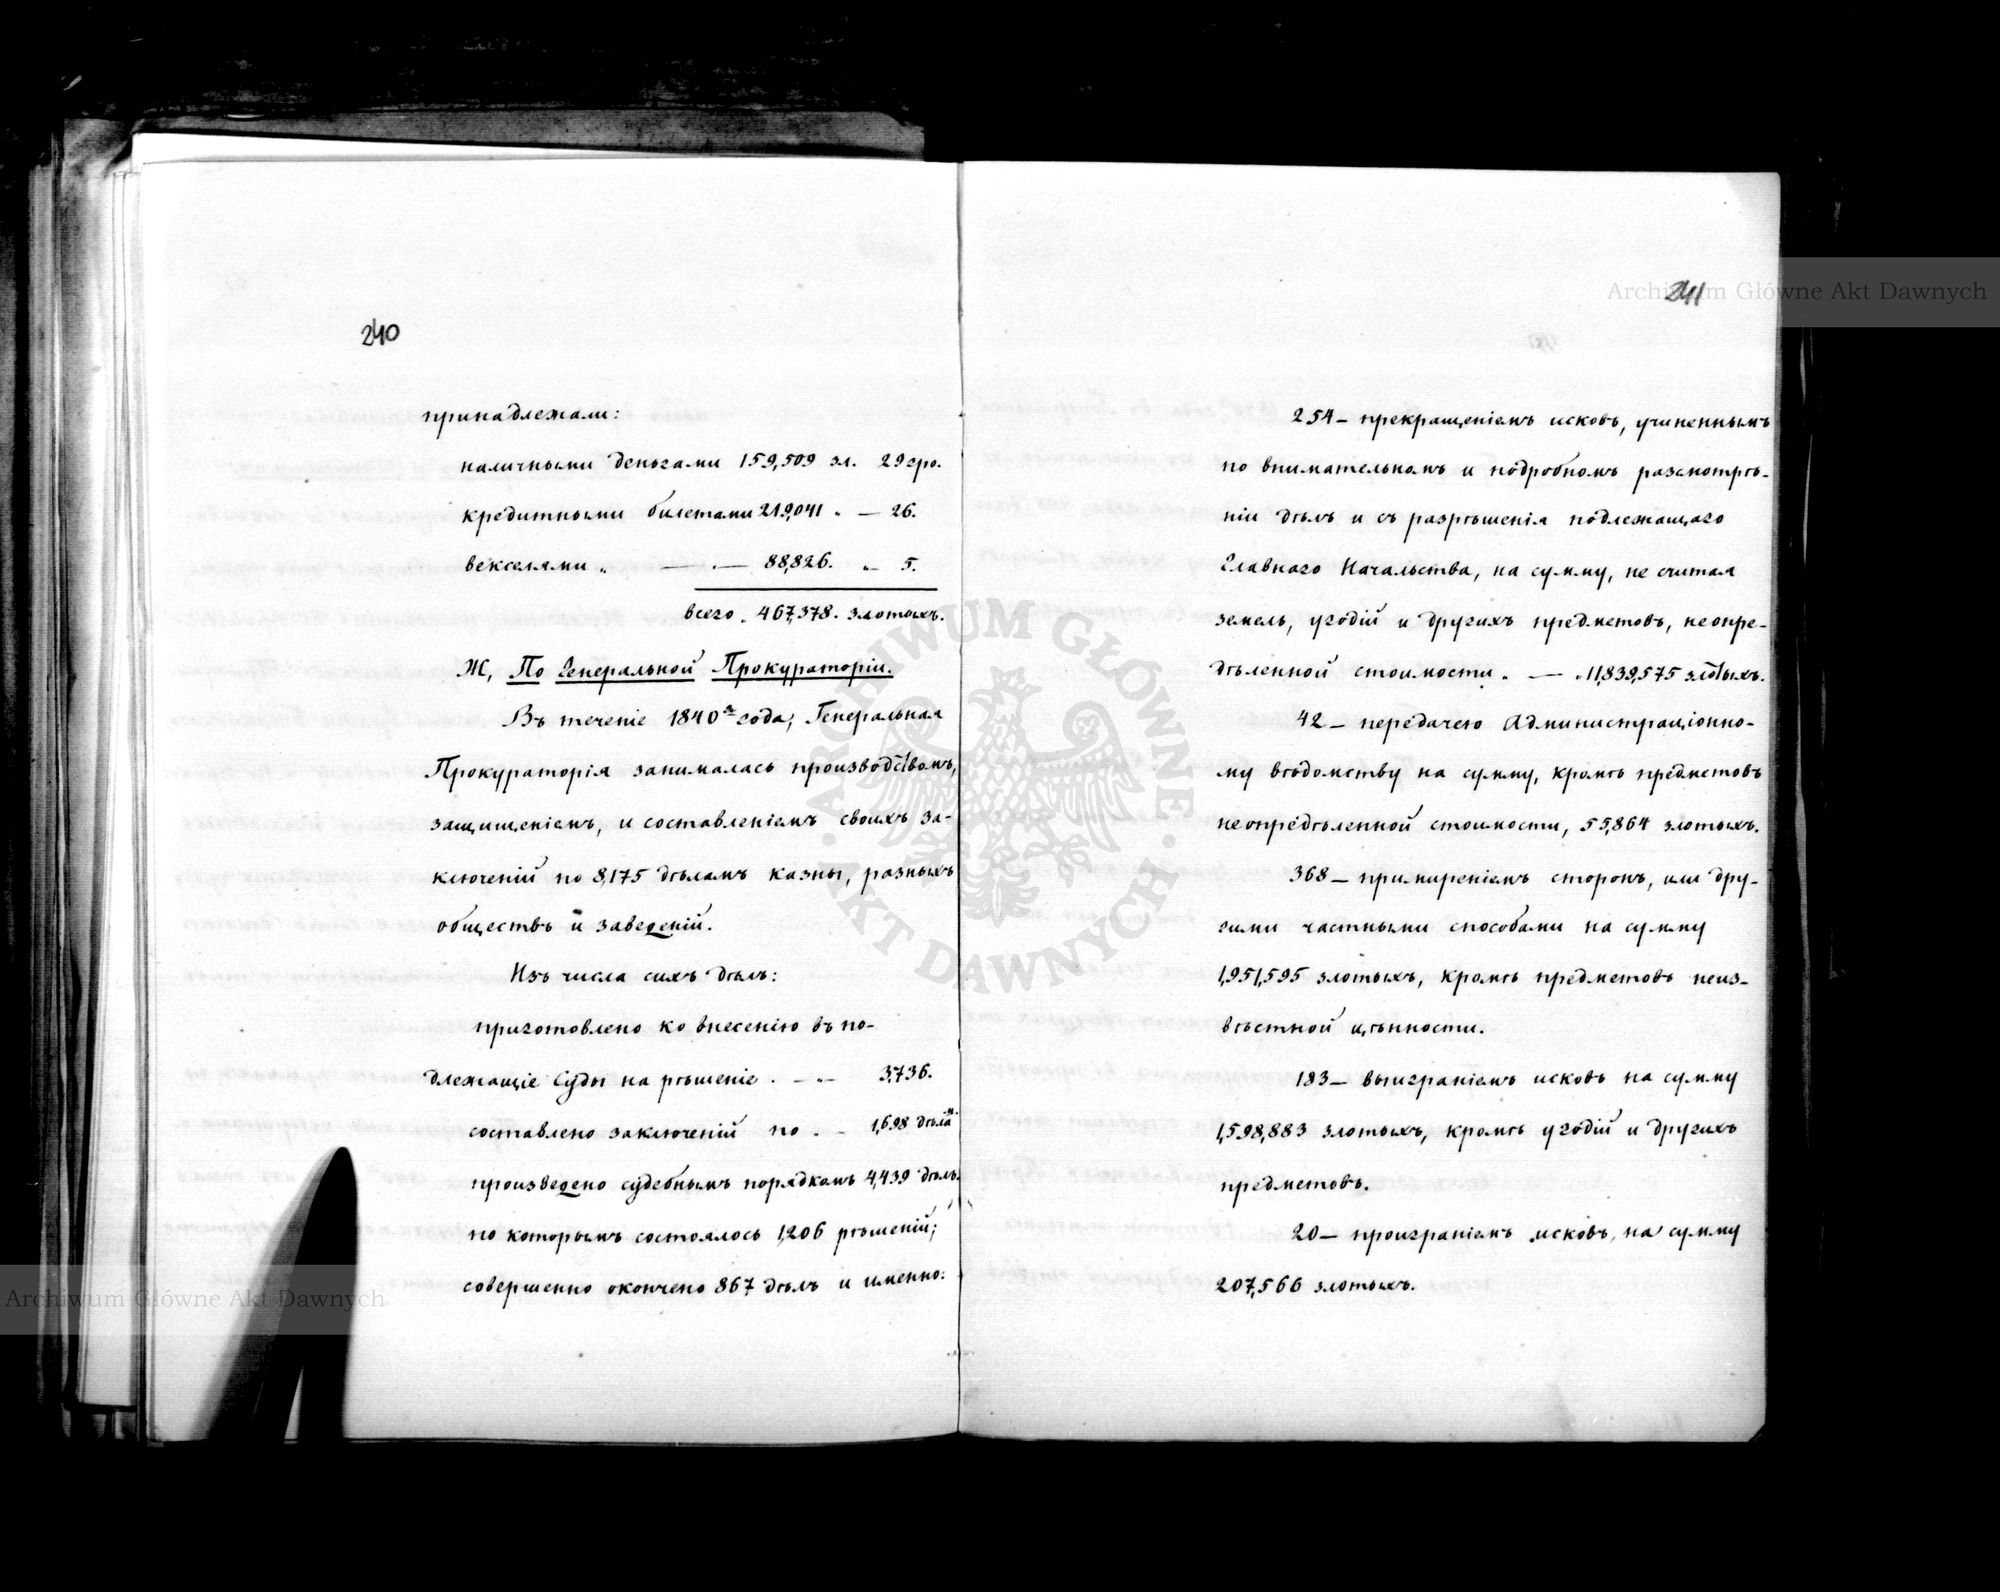 240
принадлежали:
наличными деньгами 159,509 зл. 29 гро.
кредитными билетами 219,041 „ — 26.
векселями „ — „ — 88,826. „ 5.
всего „ 467,378. злотыхъ.
Ж, По Генеральной Прокураторіи.
Въ теченіе 1840го года, Генеральная
Прокураторія занималась производствомъ,
защищеніемъ, и составленіемъ своихъ за-
ключеній по 8,175 дѣламъ казны, разныхъ
обществъ и заведеній.
Изъ числа сихъ дѣлъ:
приготовлено ко внесенію въ по-
длежащіе Суды на рѣшеніе . — „ — 3,736.
составлено заключеній по . — 1,698 дѣламъ
произведено судебнымъ порядкомъ 4,439 дѣлъ.
по которымъ состоялось 1,206 рѣшеній;
совершенно окончено 867 дѣлъ и именно:
241
254 — прекращеніемъ исковъ, учиненнымъ
по внимательномъ и подробномъ разсмотрѣ-
ніи дѣлъ и съ разрѣшенія подлежащаго
Главнаго Начальства, на сумму, не считая
земель, угодій и другихъ предметовъ, неопре-
дѣленной стоимости „ — „ 11,839,575 злотыхъ.
42 — передачею Администраціонно-
му вѣдомству на сумму, кромѣ предметовъ
неопредѣленной стоимости, 55,864 злотыхъ.
368 — примиреніемъ сторонъ, или дру-
гими частными способами на сумму
1,951,595 злотыхъ, кромѣ предметовъ неиз-
вѣстной цѣнности.
183 — выиграніемъ исковъ на сумму
1,598,883 злотыхъ, кромѣ угодій и другихъ
предметовъ.
20 — проиграніемъ исковъ, на сумму
207,566 злотыхъ.
Archiwum Główne Akt Dawnych
Archiwum Główne Akt Dawnych
ARCHIWUM GŁÓWNE · AKT DAWNYCH ·